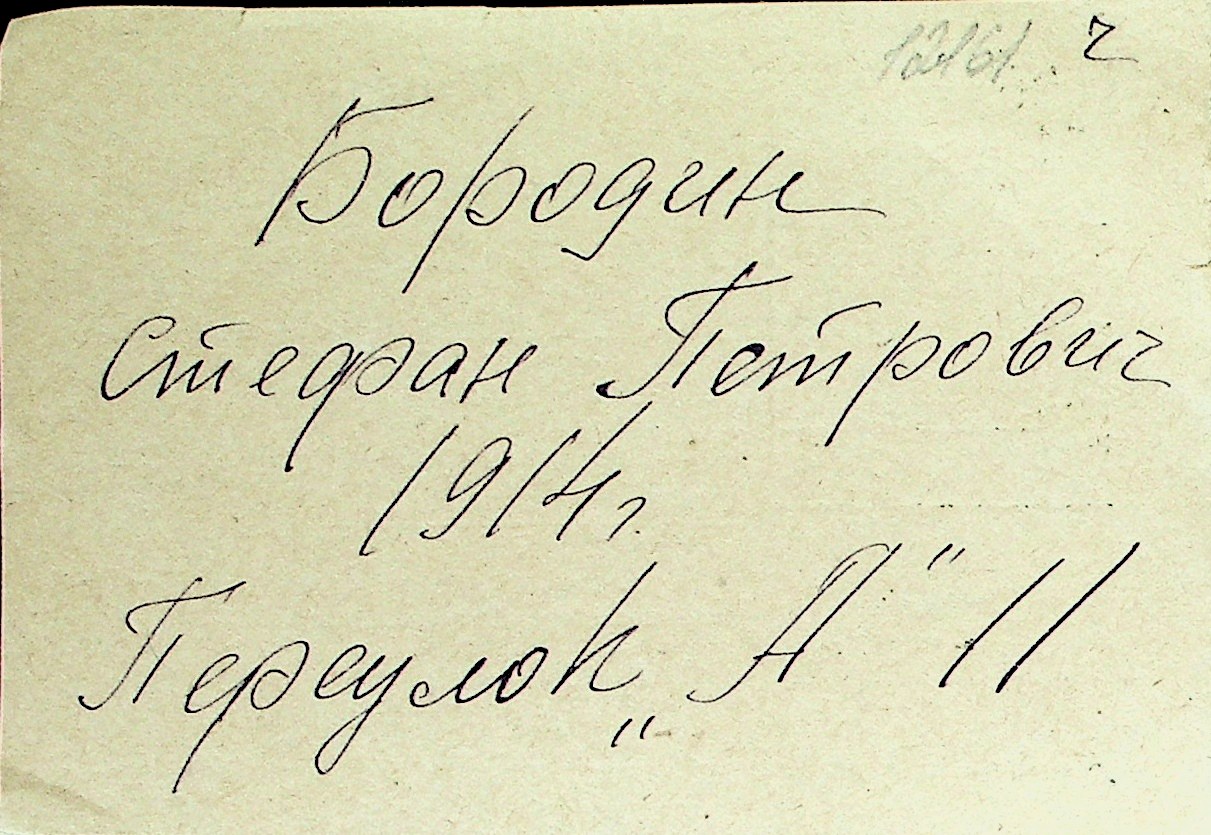 12161 ч
Бородин
Стефан Петрович
1914г.
Переулок „А" 11